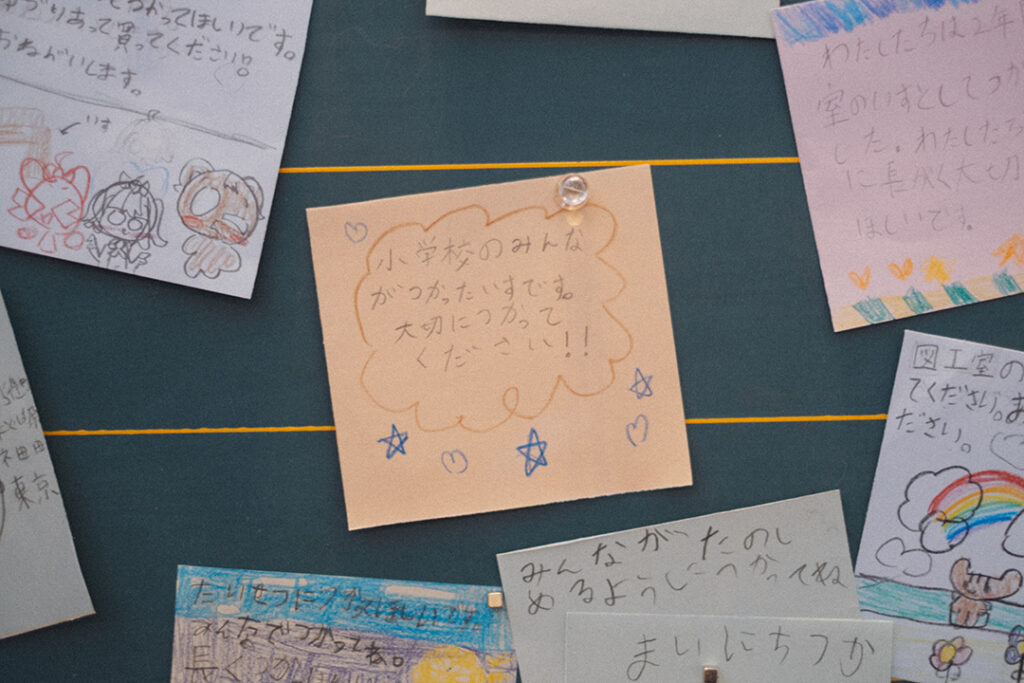 つかってほしいです。
ゆずりあって買ってください!
おねがいします。
いす
わたしたちは2年
室のいすとしてつか
した。わたしたち
に長く大切
ほしいです。
小学校のみんな
がつかったいすです。
大切につかって
ください!!
図工室の
てください。ま
ださい。
東京
みんながたのし
めるようにつかってね
まいにちつか
たいせつにつかってほしいです
みんなでつかってね。
長くつか